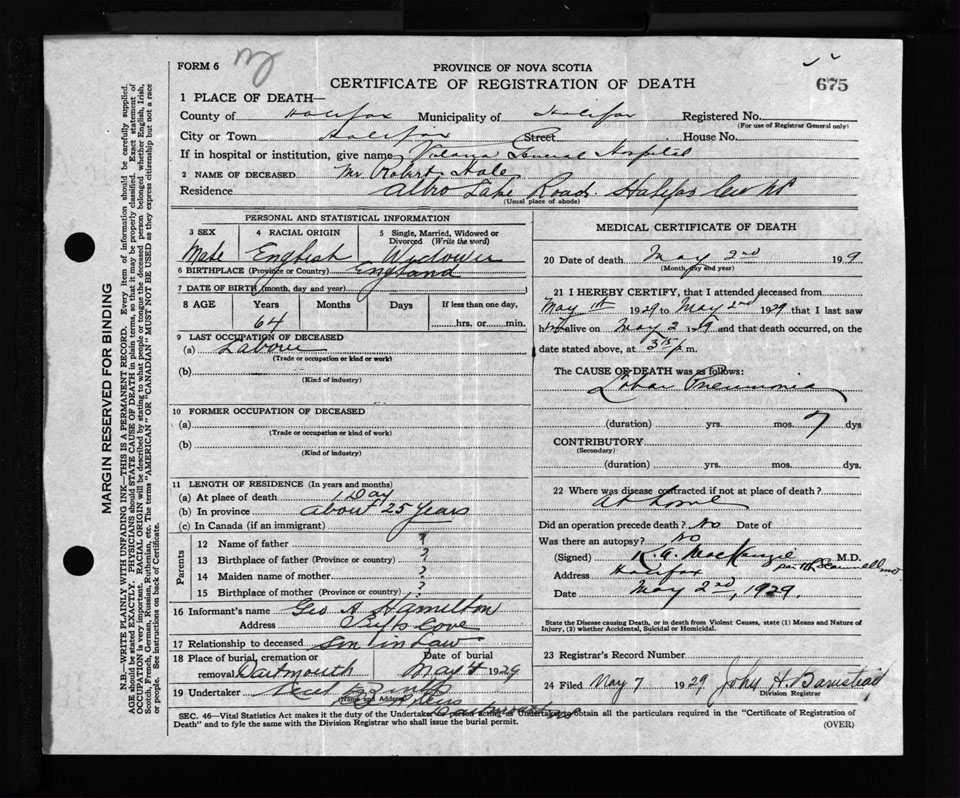 FORM 6
PROVINCE OF NOVA SCOTIA
CERTIFICATE OF REGISTRATION OF DEATH
675
1 PLACE OF DEATH—
County of Halifax Municipality of Halifax Registered No.
(For use of Registrar General only)
City or Town Halifax Street House No.
If in hospital or institution, give name General Hospital
2 NAME OF DECEASED Mr Robert Hale
Residence Albro Lake Road Halifax
(Usual place of abode)
PERSONAL AND STATISTICAL INFORMATION
3 SEX 4 RACIAL ORIGIN 5 Single, Married, Widowed or Divorced (Write the word)
Male English Widower
6 BIRTHPLACE (Province or Country) England
7 DATE OF BIRTH (month, day and year)
8 AGE Years Months Days If less than one day,
64 hrs. or min.
9 LAST OCCUPATION OF DECEASED
(a) Labourer
(Trade or occupation or kind or work)
(b)
(Kind of industry)
10 FORMER OCCUPATION OF DECEASED
(a)
(Trade or occupation or kind of work)
(b)
(Kind of industry)
11 LENGTH OF RESIDENCE (In years and months)
(a) At place of death 1 Day
(b) In province about 25 Years
(c) In Canada (if an immigrant)
Parents
12 Name of father ?
13 Birthplace of father (Province or country) ?
14 Maiden name of mother ?
15 Birthplace of mother (Province or country) ?
16 Informant's name Geo A Hamilton
Address Cove
17 Relationship to deceased Son in Law
18 Place of burial, cremation or Date of burial
removal Dartmouth May 4 1929
19 Undertaker
(Name and Address)
Dartmouth
MEDICAL CERTIFICATE OF DEATH
20 Date of death May 2nd 19 9
(Month, day and year)
21 I HEREBY CERTIFY, that I attended deceased from
May 1st 1929 to May 2nd 1929 that I last saw
h alive on May 2 1929 and that death occurred, on
date stated above, at 3 15 p m.
The CAUSE OF DEATH was as follows:
Lobar Pneumonia
(duration) yrs. mos. 7 dys
CONTRIBUTORY
(Secondary)
(duration) yrs. mos. dys.
22 Where was disease contracted if not at place of death?
At home
Did an operation precede death? No Date of
Was there an autopsy? No
(Signed) K. A. MacKenzie M.D.
Address Halifax
Date May 2nd, 1929.
State the Disease causing Death, or in death from Violent Causes, state (1) Means and Nature of
Injury, (2) whether Accidental, Suicidal or Homicidal.
23 Registrar's Record Number
24 Filed May 7 1929 John A.
Division Registrar
SEC. 46—Vital Statistics Act makes it the duty of the Undertaker or person acting as Undertaker to obtain all the particulars required in the "Certificate of Registration of
Death" and to fyle the same with the Division Registrar who shall issue the burial permit.
(OVER)
MARGIN RESERVED FOR BINDING
N.B.—WRITE PLAINLY WITH UNFADING INK—THIS IS A PERMANENT RECORD. Every item of information should be carefully supplied.
AGE should be stated EXACTLY. PHYSICIANS should STATE CAUSE OF DEATH in plain terms, so that it may be properly classified. Exact statement of
OCCUPATION is very important. RACIAL ORIGIN will be described by stating to what people or tongue the deceased person belonged whether English, Irish,
Scotch, French, German, Russian, Ruthenian, etc. The terms "AMERICAN" OR "CANADIAN" MUST NOT BE USED as they express citizenship but not a race
or people. See instructions on back of Certificate.